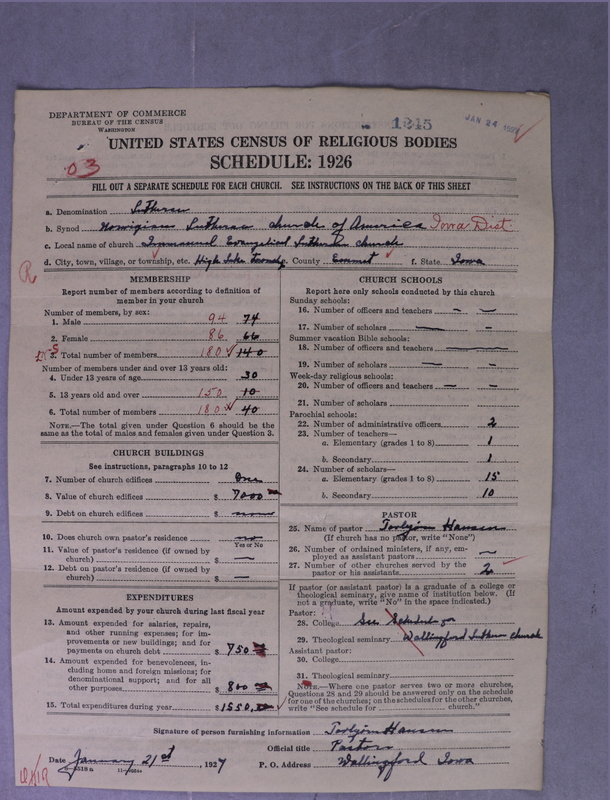 DEPARTMENT OF COMMERCE
BUREAU OF THE CENSUS
WASHINGTON
1245
JAN 24 1927
UNITED STATES CENSUS OF RELIGIOUS BODIES
SCHEDULE: 1926
03
FILL OUT A SEPARATE SCHEDULE FOR EACH CHURCH. SEE INSTRUCTIONS ON THE BACK OF THIS SHEET
a. Denomination Lutheran
b. Synod Norwigian Lutheran church of America Iowa Dist.
c. Local name of church Immanuel Evangelical Lutheran church
d. City, town, village, or township, etc. High Lake Township County Emmet f. State Iowa
R
MEMBERSHIP
Report number of members according to definition of
member in your church
Number of members, by sex:
1. Male 94 74
2. Female 86 66
3. Total number of members 180 140
Number of members under and over 13 years old:
4. Under 13 years of age 30
5. 13 years old and over 150 10
6. Total number of members 180 40
NOTE.—The total given under Question 6 should be
the same as the total of males and females given under Question 3.
CHURCH BUILDINGS
See instructions, paragraphs 10 to 12
7. Number of church edifices One
8. Value of church edifices $ 7000
9. Debt on church edifices $ none
10. Does church own pastor's residence? no
Yes or No
11. Value of pastor's residence (if owned by
church) $ —
12. Debt on pastor's residence (if owned by
church) $ —
EXPENDITURES
Amount expended by your church during last fiscal year
13. Amount expended for salaries, repairs,
and other running expenses; for im-
provements or new buildings; and for
payments on church debt $ 750
14. Amount expended for benevolences, in-
cluding home and foreign missions; for
denominational support; and for all
other purposes $ 800
15. Total expenditures during year $ 1550
CHURCH SCHOOLS
Report here only schools conducted by this church
Sunday schools:
16. Number of officers and teachers — —
17. Number of scholars — —
Summer vacation Bible schools:
18. Number of officers and teachers —
19. Number of scholars — —
Week-day religious schools:
20. Number of officers and teachers — —
21. Number of scholars
Parochial schools:
22. Number of administrative officers 2
23. Number of teachers—
a. Elementary (grades 1 to 8) 1
b. Secondary 1
24. Number of scholars—
a. Elementary (grades 1 to 8) 15
b. Secondary 10
PASTOR
25. Name of pastor Torbjorn Hansen
(If church has no pastor, write "None")
26. Number of ordained ministers, if any, em-
ployed as assistant pastors —
27. Number of other churches served by the
pastor or his assistants 2
If pastor (or assistant pastor) is a graduate of a college or
theological seminary, give name of institution below. (If
not a graduate, write "No" in the space indicated.)
Pastor:
28. College See Schedule for
29. Theological seminary Wallingford Lutheran church
Assistant pastor:
30. College
31. Theological seminary
NOTE.—Where one pastor serves two or more churches,
Questions 28 and 29 should be answered only on the schedule
for one of the churches; on the schedules for the other churches,
write "See schedule for church."
Signature of person furnishing information Torbjorn Hansen
Official title Pastor
Date January 21st, 1927 P. O. Address Wallingford Iowa